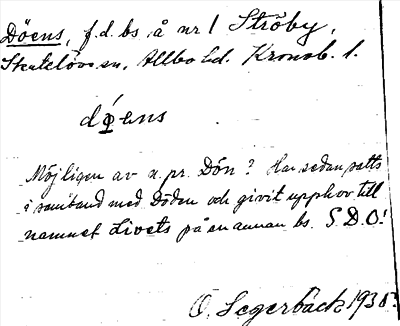 Döens, f.d. bs å nr 1 Ströby,
Skatelövs sn, Allbo hd. Kronob. l.
dǿens
Möjligen av n. pr. Dön? Har sedan satts
i samband med Döden och givit upphov till
namnet Livets på en annan bs. S.D.O!
O. Segerbäck 1935.